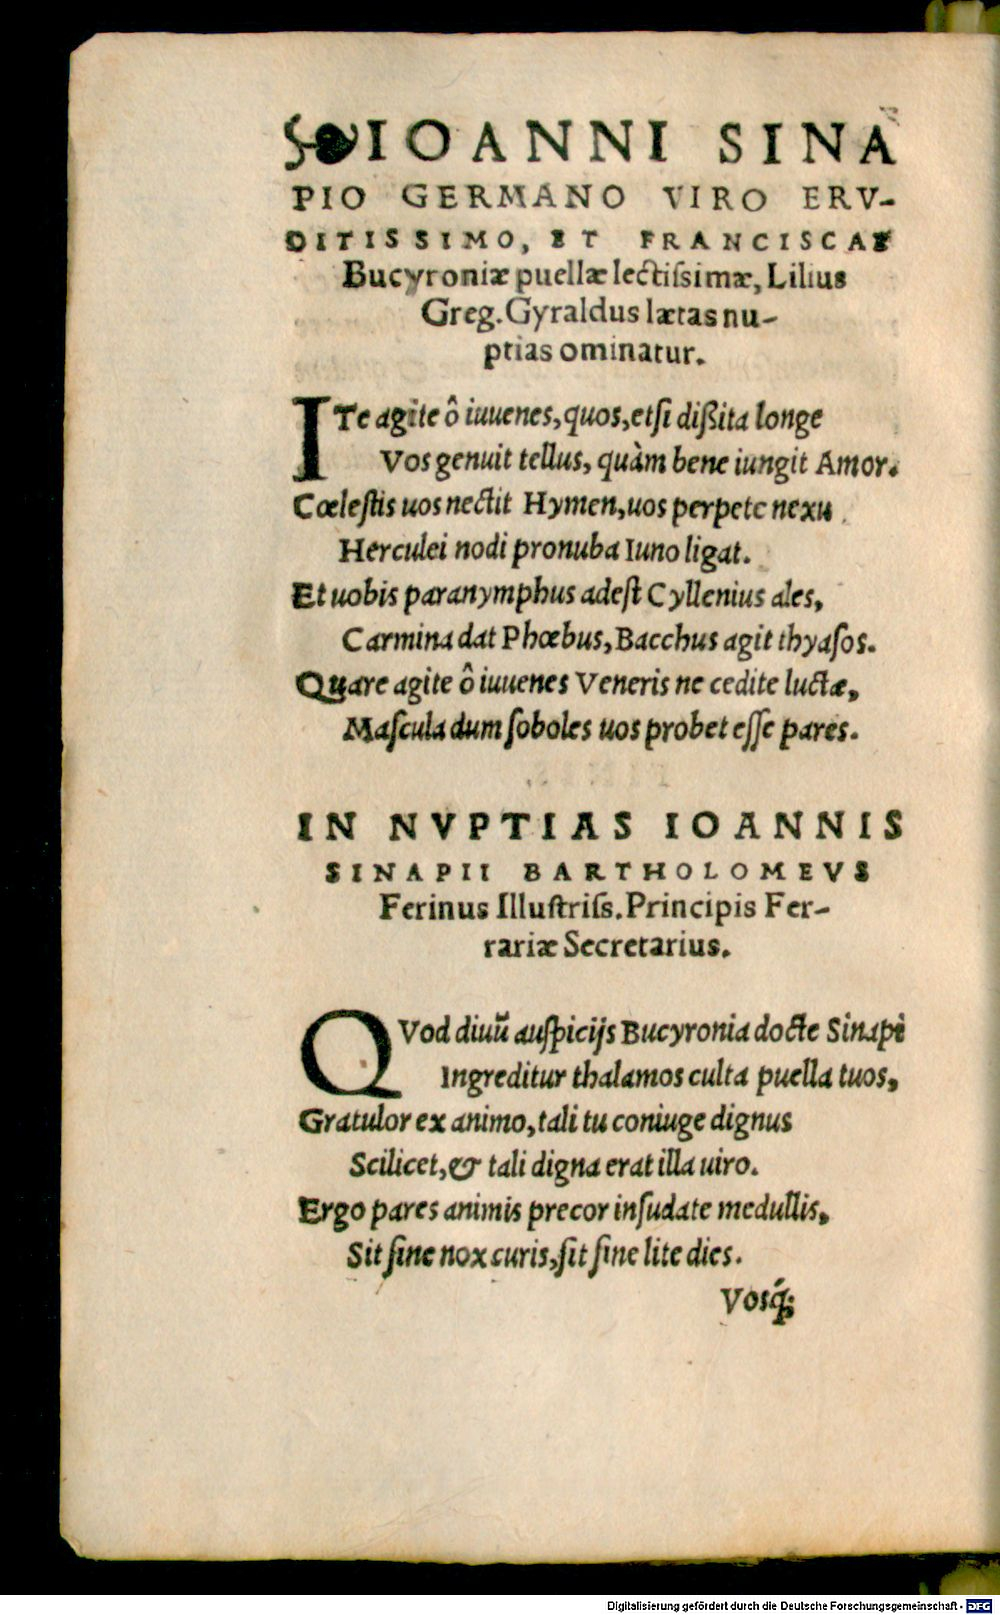 IOANNI SINA
PIO GERMANO VIRO ERV-
DITISSIMO, ET FRANCISCAE
Bucyroniæ puellæ lectiſsimæ, Lilius
Greg. Gyraldus lætas nu-
ptias ominatur.
ITe agite ô iuuenes, quos, etſi dißita longe
Vos genuit tellus, quàm bene iungit Amor.
Cœleſtis uos nectit Hymen, uos perpete nexu
Herculei nodi pronuba Iuno ligat.
Et uobis paranymphus adeſt Cyllenius ales,
Carmina dat Phœbus, Bacchus agit thyaſos.
Quare agite ô iuuenes Veneris ne cedite luctæ,
Maſcula dum ſoboles uos probet eſſe pares.
IN NVPTIAS IOANNIS
SINAPII BARTHOLOMEVS
Ferinus Illuſtriſs. Principis Fer-
rariæ Secretarius.
QVod diuũ auſpicijs Bucyronia docte Sinapi
Ingreditur thalamos culta puella tuos,
Gratulor ex animo, tali tu coniuge dignus
Scilicet, & tali digna erat illa uiro.
Ergo pares animis precor inſudate medullis,
Sit ſine nox curis, ſit ſine lite dies.
Vosq́;
Digitalisierung gefördert durch die Deutsche Forschungsgemeinschaft - DFG